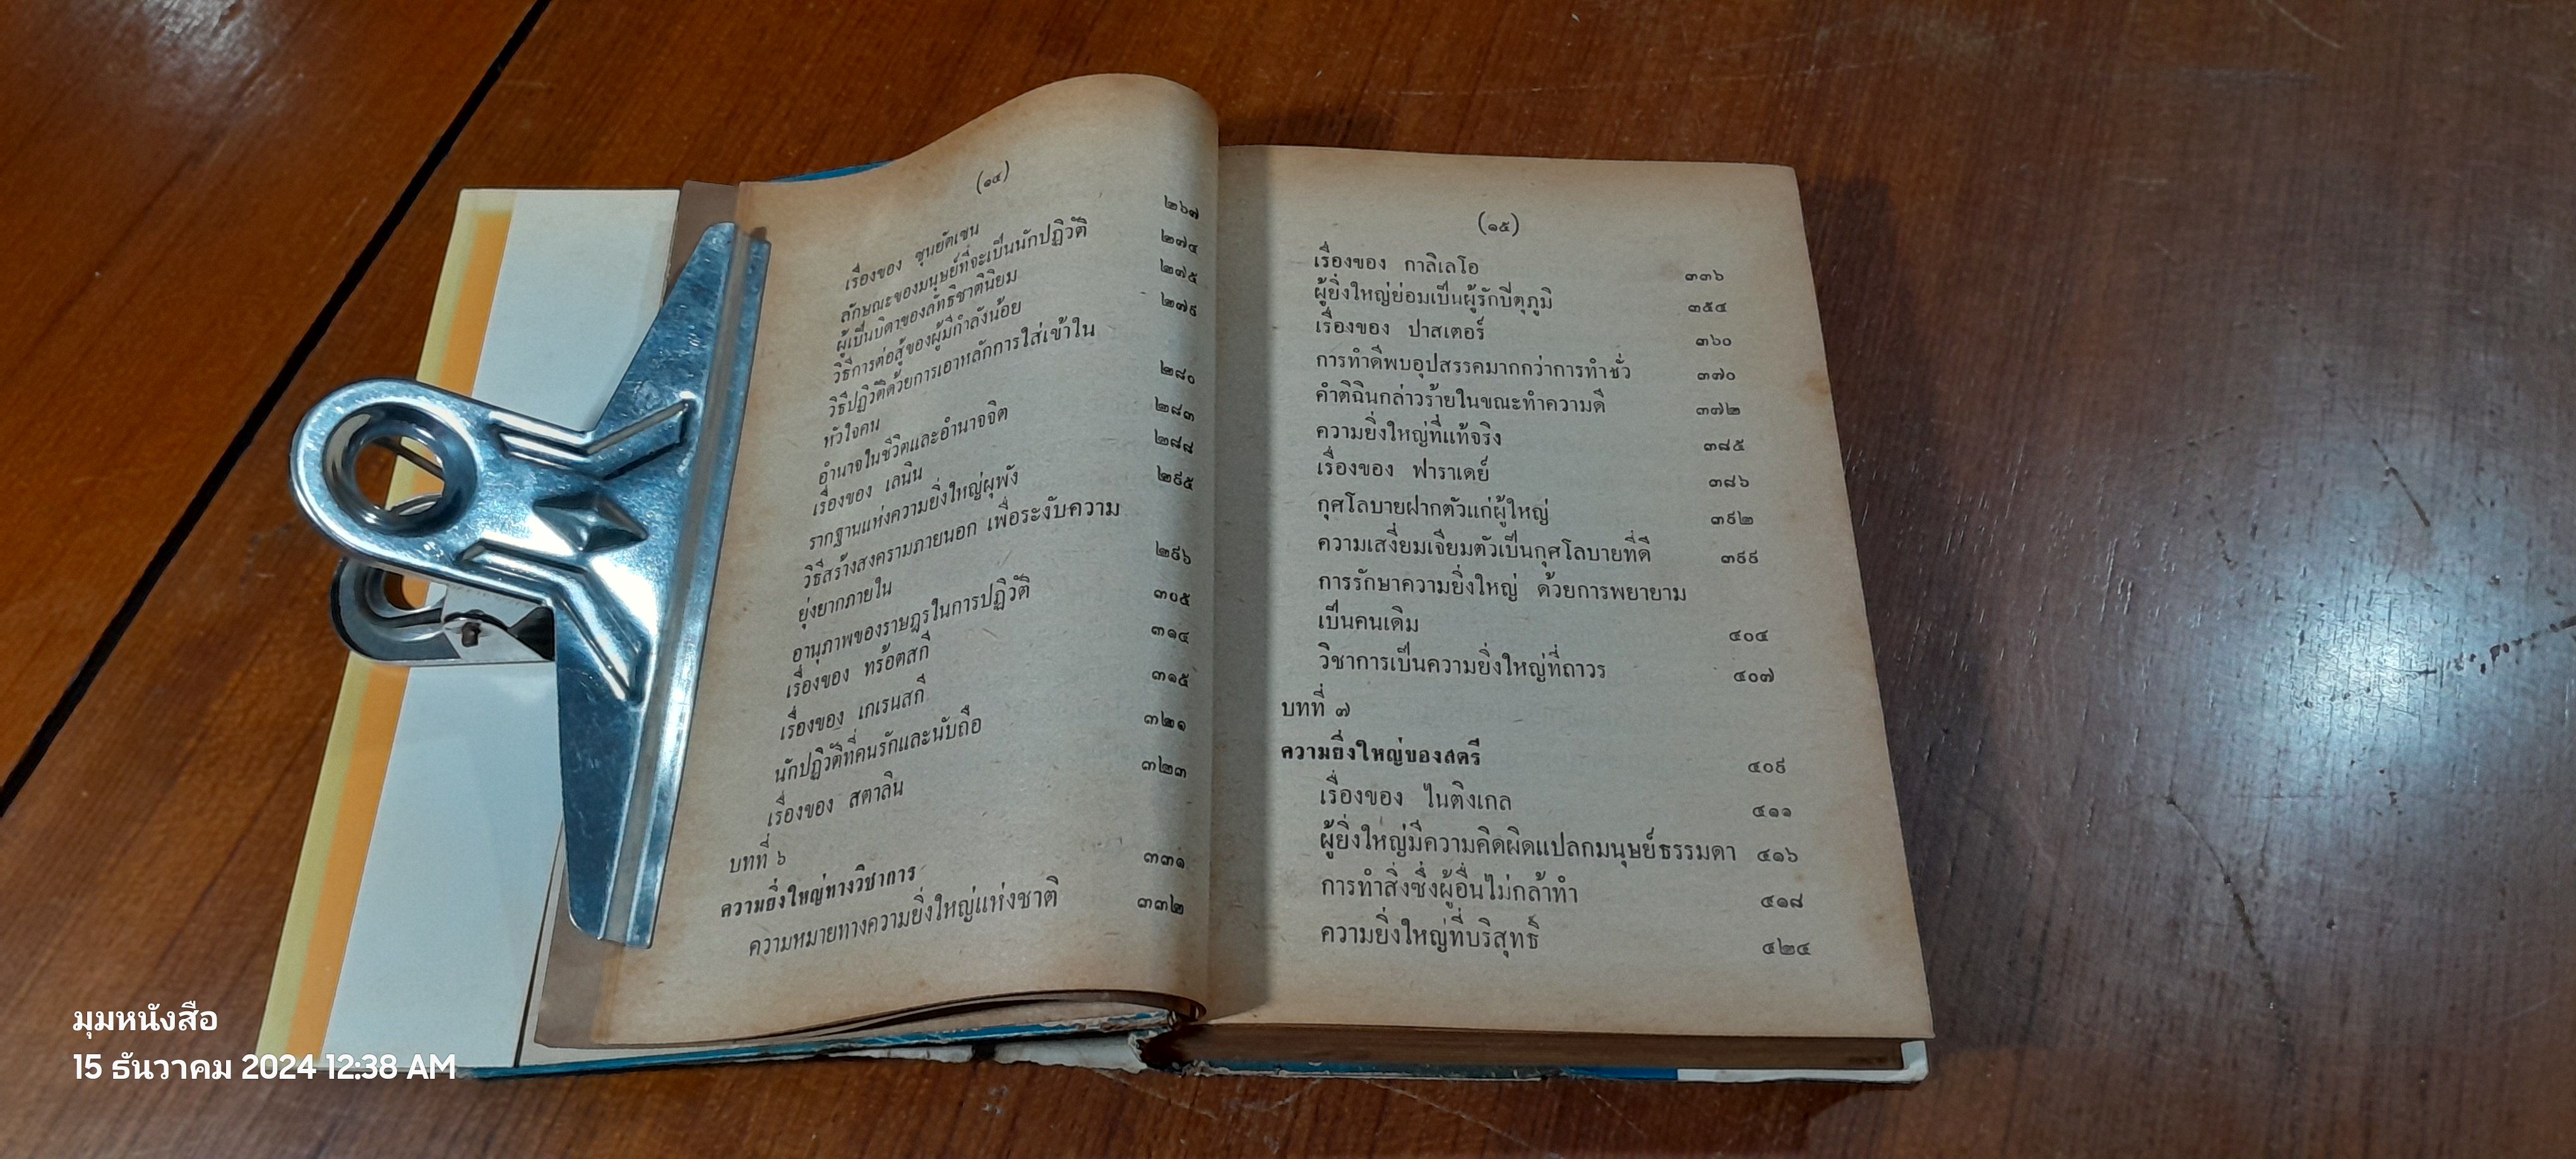 (๑๔)
เรื่องของ ซุนยัตเซน ๒๖๗
ลักษณะของมนุษย์ที่จะเป็นนักปฏิวัติ ๒๗๔
ผู้เป็นบิดาของลัทธิชาตินิยม ๒๗๕
วิธีการต่อสู้ของผู้มีกำลังน้อย ๒๗๙
วิธีปฏิวัติด้วยการเอาหลักการใส่เข้าใน
หัวใจคน ๒๘๐
อำนาจในชีวิตและอำนาจจิต ๒๘๓
เรื่องของ เลนิน ๒๘๘
รากฐานแห่งความยิ่งใหญ่ผุพัง ๒๙๕
วิธีสร้างสงครามภายนอก เพื่อระงับความ
ยุ่งยากภายใน ๒๙๖
อานุภาพของราษฎรในการปฏิวัติ ๓๐๕
เรื่องของ ทร้อตสกี ๓๑๔
เรื่องของ เกเรนสกี ๓๑๕
นักปฏิวัติที่คนรักและนับถือ ๓๒๑
เรื่องของ สตาลิน ๓๒๓
บทที่ ๖
ความยิ่งใหญ่ทางวิชาการ ๓๓๑
ความหมายทางความยิ่งใหญ่แห่งชาติ ๓๓๒
(๑๕)
เรื่องของ กาลิเลโอ ๓๓๖
ผู้ยิ่งใหญ่ย่อมเป็นผู้รักบีตุภูมิ ๓๕๔
เรื่องของ ปาสเตอร์ ๓๖๐
การทำดีพบอุปสรรคมากกว่าการทำชั่ว ๓๗๐
คำติฉินกล่าวร้ายในขณะทำความดี ๓๗๒
ความยิ่งใหญ่ที่แท้จริง ๓๘๕
เรื่องของ ฟาราเดย์ ๓๘๖
กุศโลบายฝากตัวแก่ผู้ใหญ่ ๓๙๒
ความเสงี่ยมเจียมตัวเป็นกุศโลบายที่ดี ๓๙๙
การรักษาความยิ่งใหญ่ ด้วยการพยายาม
เป็นคนเดิม ๔๐๔
วิชาการเป็นความยิ่งใหญ่ที่ถาวร ๔๐๗
บทที่ ๗
ความยิ่งใหญ่ของสตรี ๔๐๙
เรื่องของ ไนติงเกล ๔๑๑
ผู้ยิ่งใหญ่มีความคิดผิดแปลกมนุษย์ธรรมดา ๔๑๖
การทำสิ่งซึ่งผู้อื่นไม่กล้าทำ ๔๑๘
ความยิ่งใหญ่ที่บริสุทธิ์ ๔๒๔
มุมหนังสือ
15 ธันวาคม 2024 12:38 AM